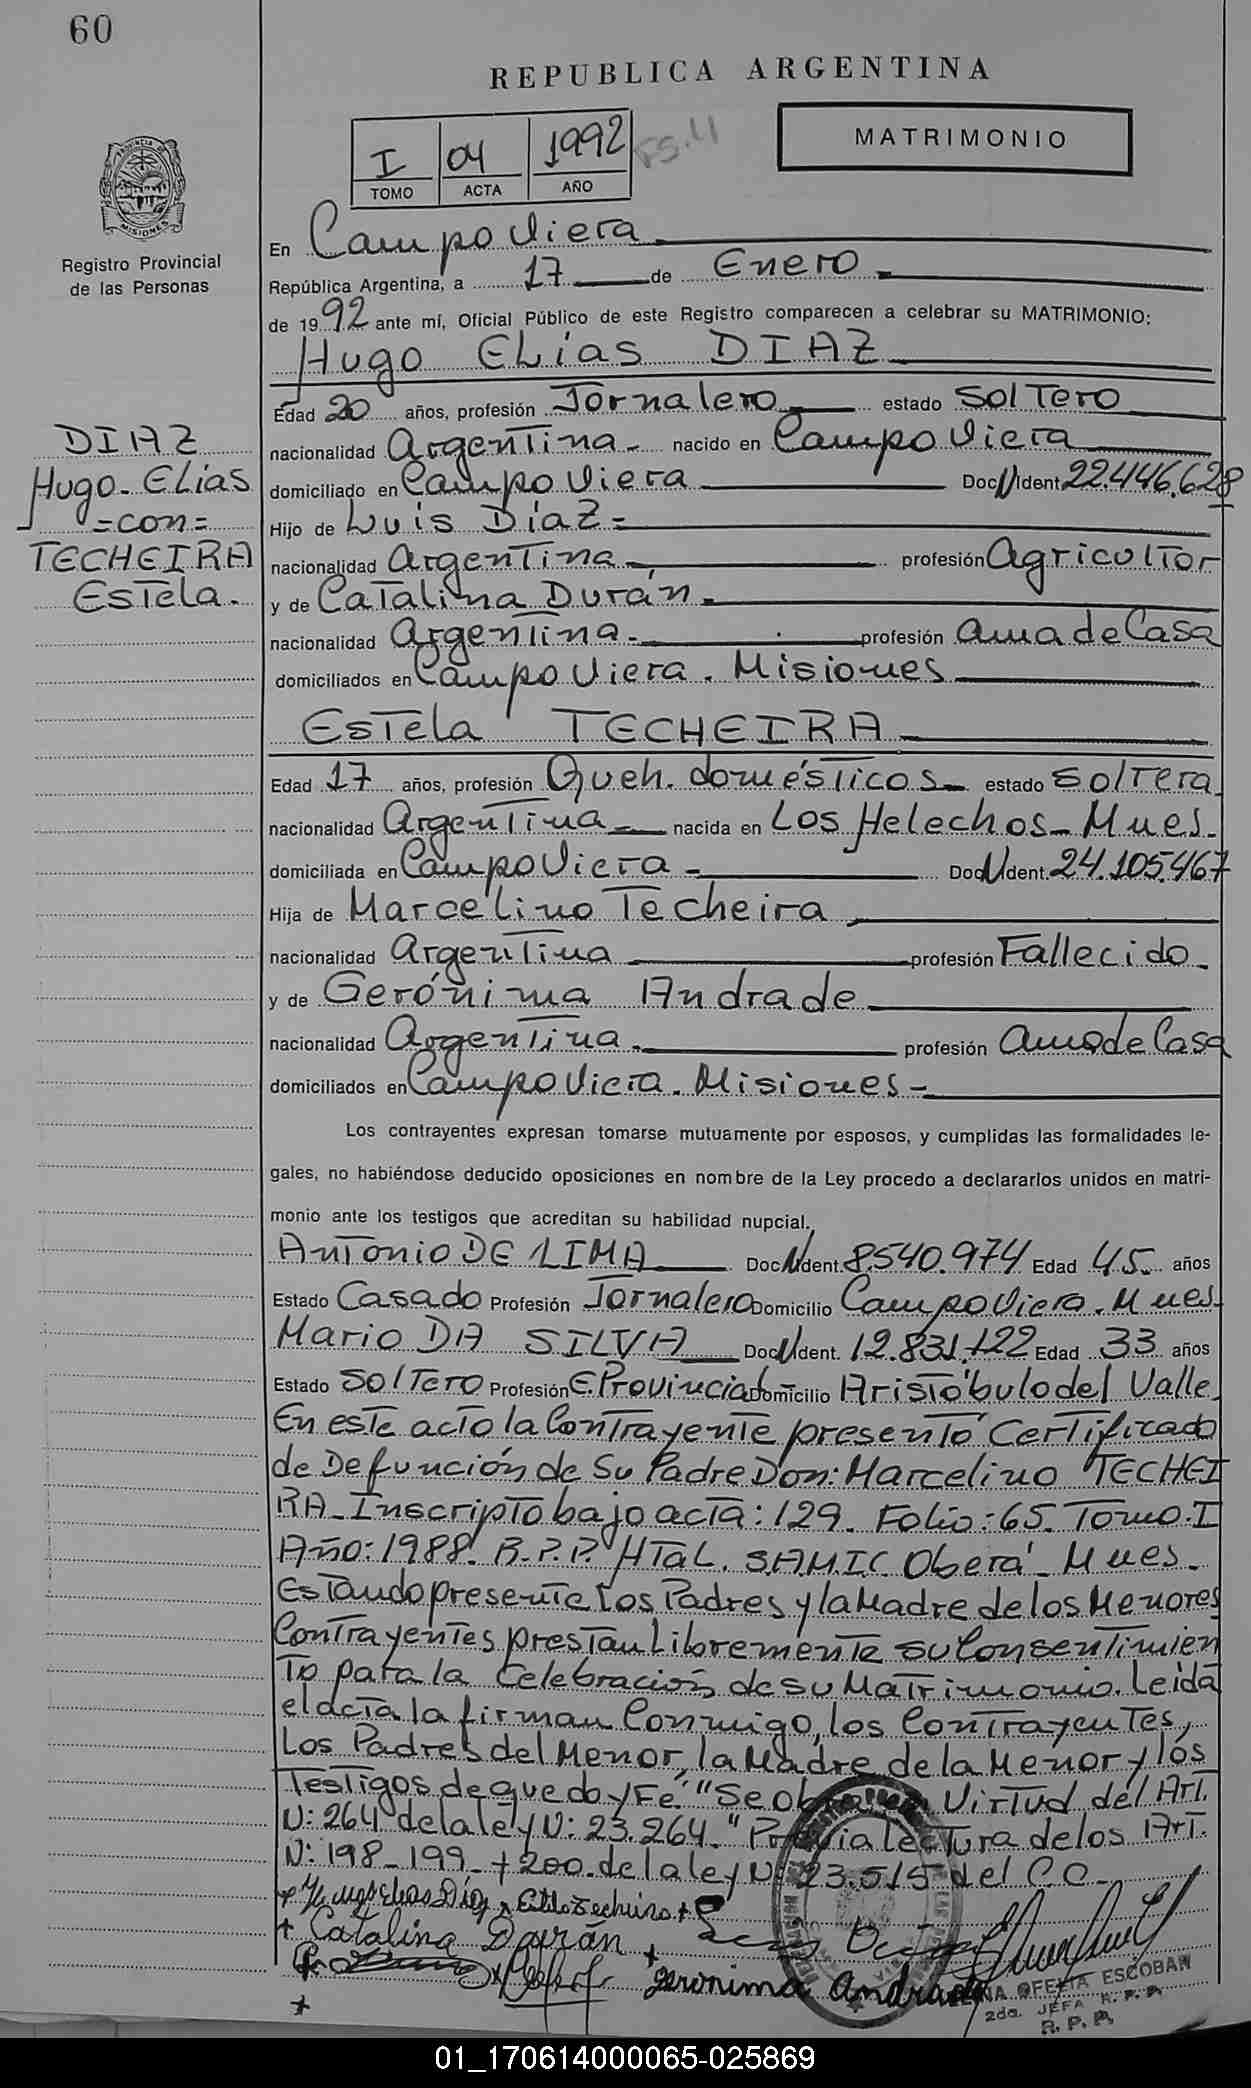 60
REPUBLICA ARGENTINA
I 04 1992 FS. 41
TOMO ACTA AÑO
MATRIMONIO
PROVINCIA DE
MISIONES
Registro Provincial
de las Personas
En Campo Viera
República Argentina, a 17 de Enero
de 1992 ante mí, Oficial Público de este Registro comparecen a celebrar su MATRIMONIO:
Hugo ELias DIAZ
Edad 20 años, profesión Jornalero estado SolTero
nacionalidad ArgenTina nacido en Campo Viera
domiciliado en Campo Viera Doc N Ident 22.446.628
Hijo de Luis Diaz
nacionalidad ArgenTina profesión AgriculTor
y de CaTalina Durán
nacionalidad ArgenTina profesión ama de Casa
domiciliados en Campo Viera. Misiones
DIAZ
Hugo-ELias
=con=
TECHEIRA
EsTela.
EsTela TECHEIRA
Edad 17 años, profesión Queh. domésTicos estado solTera
nacionalidad ArgenTina nacida en Los Helechos-Mnes.
domiciliada en Campo Viera Doc N Ident. 24.105.467
Hija de Marcelino Techeira
nacionalidad ArgenTina profesión Fallecido
y de Gerónima Andrade
nacionalidad ArgenTina profesión Ama de Casa
domiciliados en Campo Viera. Misiones
Los contrayentes expresan tomarse mutuamente por esposos, y cumplidas las formalidades le-
gales, no habiéndose deducido oposiciones en nombre de la Ley procedo a declararlos unidos en matri-
monio ante los testigos que acreditan su habilidad nupcial.
AnTonio DE LIMA Doc N Ident. 8.540.974 Edad 45 años
Estado Casado Profesión Jornalero Domicilio Campo Viera. Mnes.
Mario DA SILVA Doc N Ident. 12.831.122 Edad 33 años
Estado SolTero Profesión E. Provincial Domicilio ArisTóbulo del Valle.
En esTe acTo la ConTrayenTe presenTó CerTificado
de Defunción de Su Padre Don: Marcelino TECHEI
RA. InscripTo bajo acTa: 129. Folio: 65. Tomo. I
Año: 1988. R.P.P. HTaL. S.A.M.I.C. Oberá. Mnes.
EsTando presenTe Los Padres y la Madre de los Menores
ConTrayenTes presTan Libremente su ConsenTimien
To para la celebración de su MaTrimonio. Leida
el acTa la firman Conmigo, los ConTrayenTes,
Los Padres del Menor, la Madre de la Menor y los
TesTigos de que doy Fé "Se obra en VirTud del ArT.
N: 264 de la ley N: 23.264." Previa lecTura de los ArT.
N: 198-199-+200. de la ley N: 23.515 del C.C.
Hugo Elias Díaz Estela Techeira
Catalina Durán
Geronima Andrade
OFELIA ESCOBAR
2da. JEFA R.P.P.
R.P.P.
01_170614000065-025869